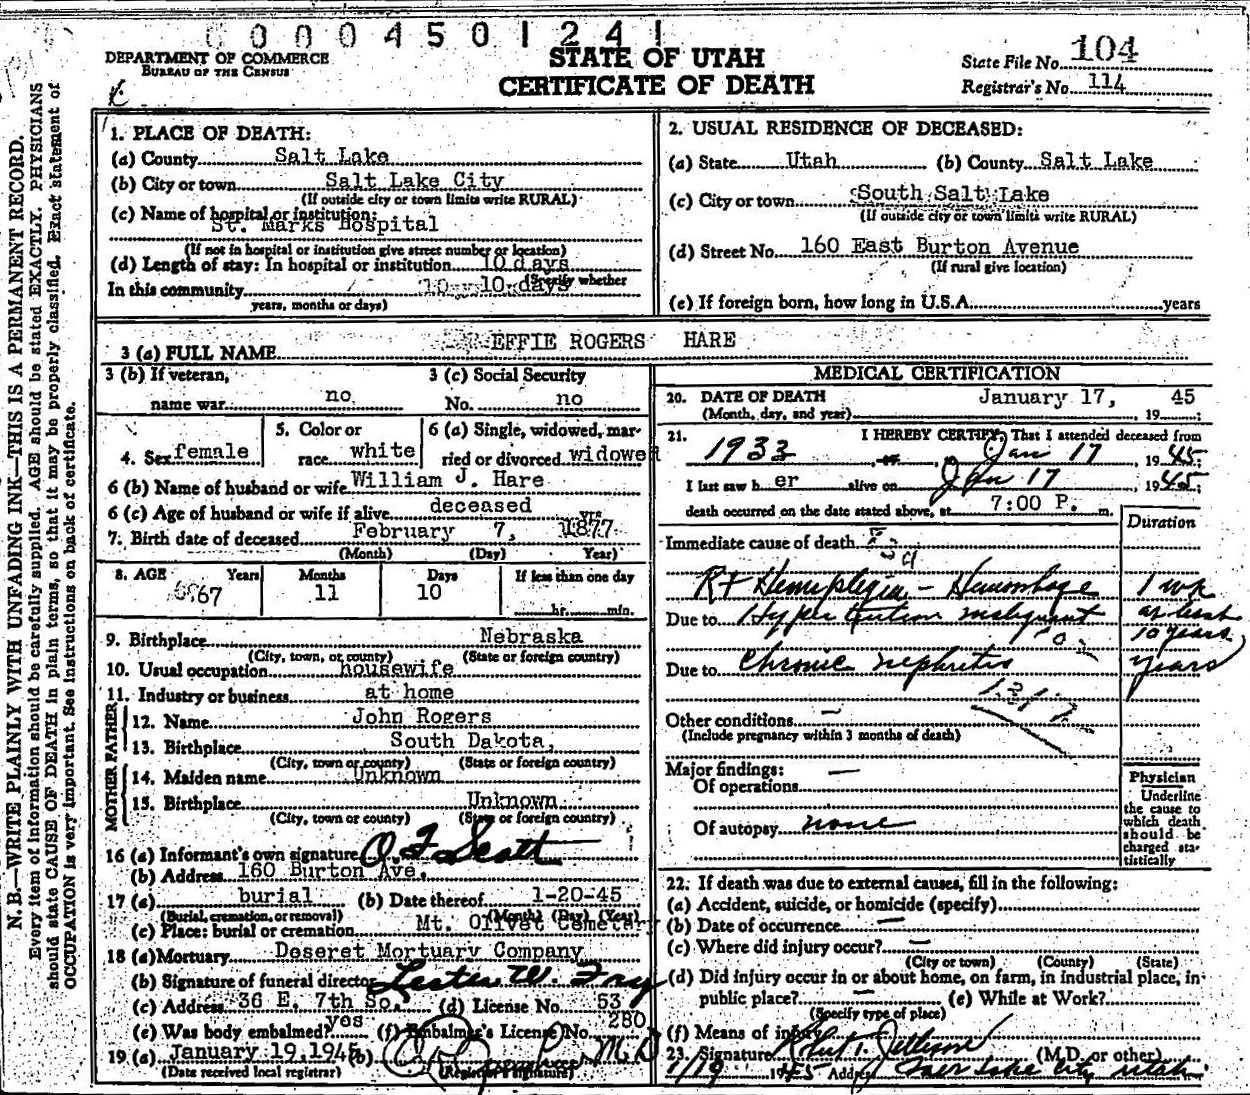 0 0 0 4 5 0 1 2 4 1
DEPARTMENT OF COMMERCE
BUREAU OF THE CENSUS
STATE OF UTAH
CERTIFICATE OF DEATH
State File No. 104
Registrar's No. 114
N. B.—WRITE PLAINLY WITH UNFADING INK—THIS IS A PERMANENT RECORD.
Every item of information should be carefully supplied. AGE should be stated EXACTLY. PHYSICIANS
should state CAUSE OF DEATH in plain terms, so that it may be properly classified. Exact statement of
OCCUPATION is very important. See instructions on back of certificate.
1. PLACE OF DEATH:
(a) County Salt Lake
(b) City or town Salt Lake City
(If outside city or town limits write RURAL)
(c) Name of hospital or institution:
St. Marks Hospital
(If not in hospital or institution give street number or location)
(d) Length of stay: In hospital or institution 10 days
(Specify whether
In this community 10 days
years, months or days)
2. USUAL RESIDENCE OF DECEASED:
(a) State Utah (b) County Salt Lake
(c) City or town South Salt Lake
(If outside city or town limits write RURAL)
(d) Street No. 160 East Burton Avenue
(If rural give location)
(e) If foreign born, how long in U.S.A. years
3 (a) FULL NAME EFFIE ROGERS HARE
3 (b) If veteran,
name war no
3 (c) Social Security
No. no
4. Sex female
5. Color or
race white
6 (a) Single, widowed, mar-
ried or divorced widowed
6 (b) Name of husband or wife William J. Hare
6 (c) Age of husband or wife if alive deceased yrs
7. Birth date of deceased February 7, 1877
(Month) (Day) Year)
8. AGE Years Months Days If less than one day
67 11 10 hr. min.
9. Birthplace Nebraska
(City, town, or county) (State or foreign country)
10. Usual occupation housewife
11. Industry or business at home
FATHER
12. Name John Rogers
13. Birthplace South Dakota,
(City, town or county) (State or foreign country)
MOTHER
14. Maiden name Unknown
15. Birthplace Unknown
(City, town or county) (State or foreign country)
16 (a) Informant's own signature O. F. Scott
(b) Address 160 Burton Ave.
17 (a) burial (b) Date thereof 1-20-45
(Burial, cremation, or removal) (Month) (Day) (Year)
(c) Place: burial or cremation Mt. Olivet Cemetery
18 (a) Mortuary Deseret Mortuary Company
(b) Signature of funeral director Lester W. Fay
(c) Address 36 E. 7th So. (d) License No. 53
(e) Was body embalmed? yes (f) Embalmer's License No. 280
19 (a) January 19, 1945 (b) M D
(Date received local registrar) (Registrar's signature)
MEDICAL CERTIFICATION
20. DATE OF DEATH January 17, 45
(Month, day, and year) , 19 ;
21. I HEREBY CERTIFY, That I attended deceased from
1933 , Jan 17 , 1945
I last saw her alive on Jan 17 , 1945;
death occurred on the date stated above, at 7:00 P. m.
Duration
Immediate cause of death
Rt Hemiplegia - Hemorrhage 1 wk
Due to Hypertension malignant at least
10 years
Due to Chronic nephritis years
Other conditions —
(Include pregnancy within 3 months of death)
Major findings: —
Of operations
Of autopsy none
Physician
Underline
the cause to
which death
should be
charged sta-
tistically
22. If death was due to external causes, fill in the following:
(a) Accident, suicide, or homicide (specify)
(b) Date of occurrence —
(c) Where did injury occur? —
(City or town) (County) (State)
(d) Did injury occur in or about home, on farm, in industrial place, in
public place? — (e) While at Work?
(Specify type of place)
(f) Means of injury
23. Signature (M.D. or other)
1/19 1945 Address Salt Lake City, Utah